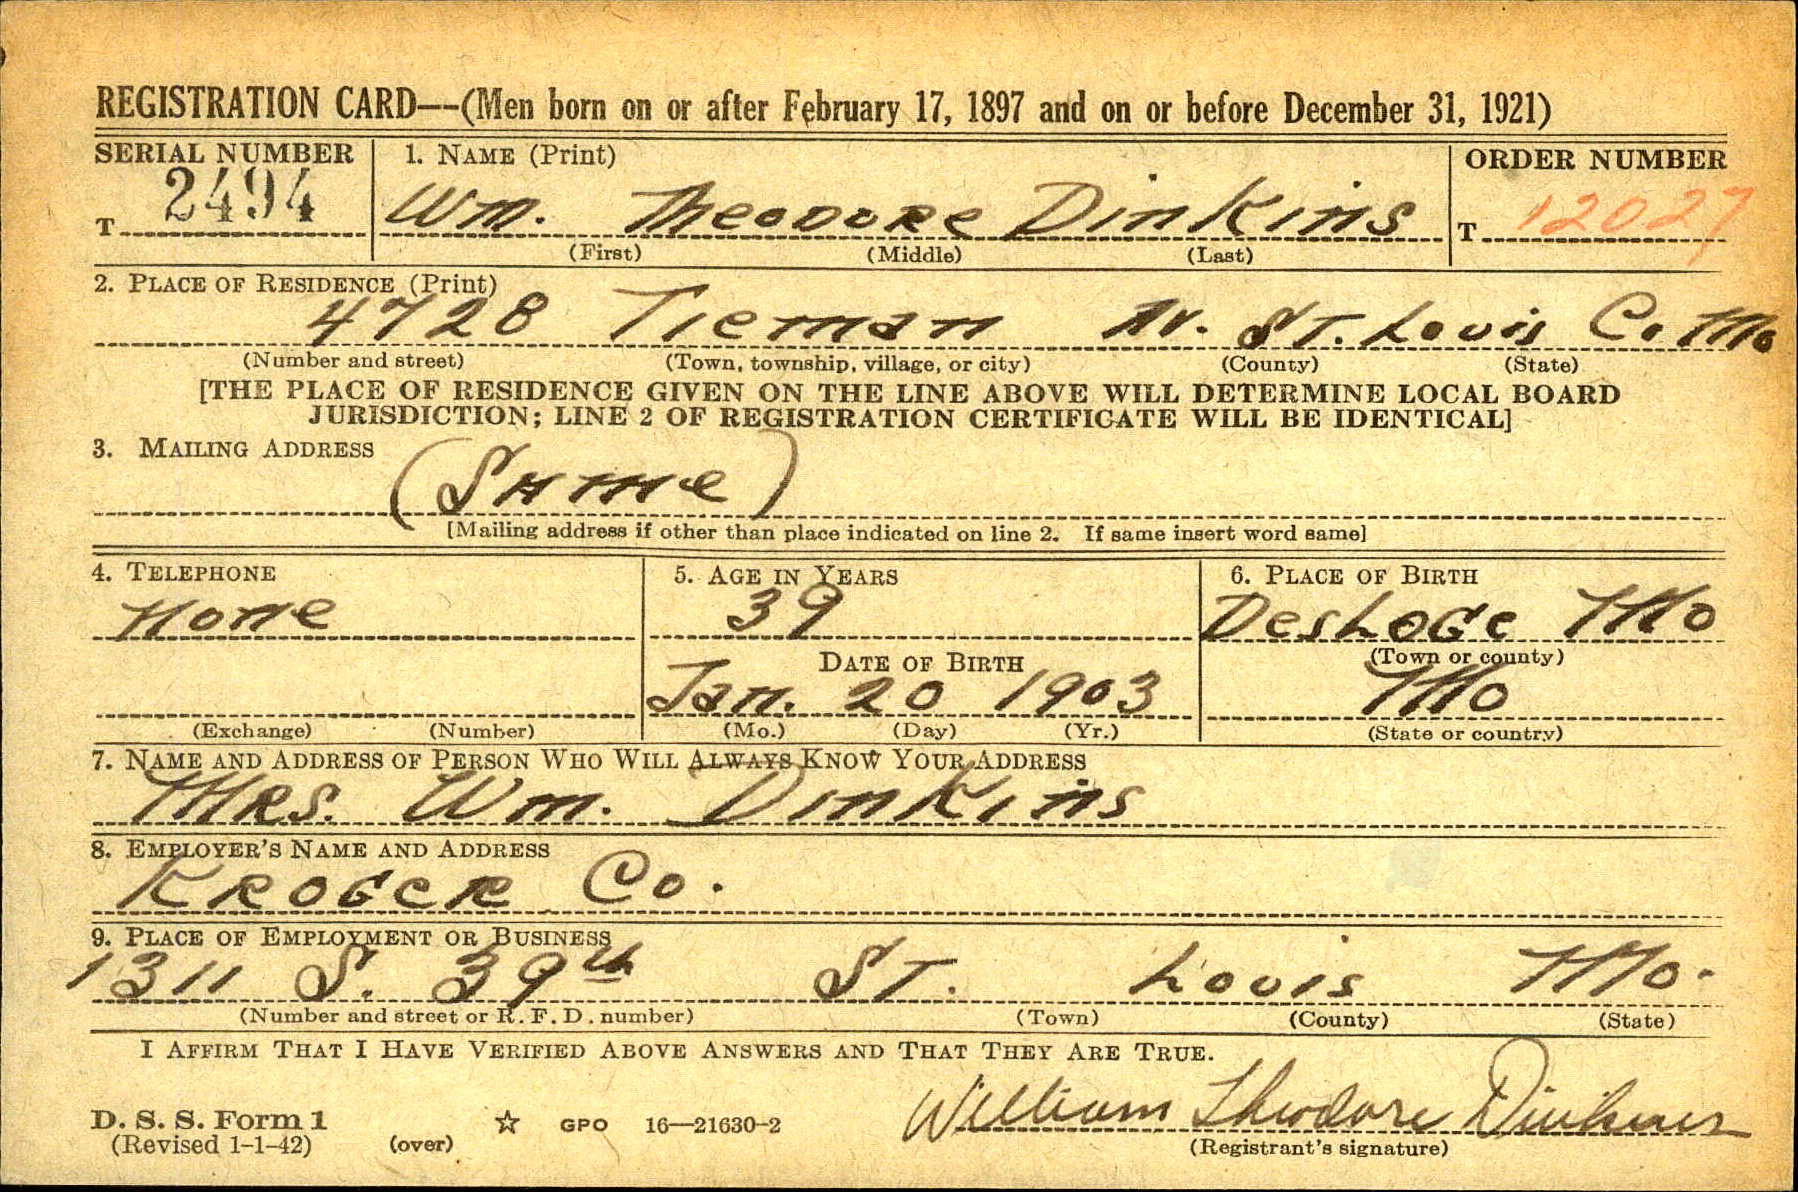 REGISTRATION CARD—(Men born on or after February 17, 1897 and on or before December 31, 1921)
SERIAL NUMBER 1. NAME (Print) ORDER NUMBER
T 2494 Wm. Theodore Dinkins T 12027
(First) (Middle) (Last)
2. PLACE OF RESIDENCE (Print)
4728 Tieman Av. St. Louis Co. Mo
(Number and street) (Town, township, village, or city) (County) (State)
[THE PLACE OF RESIDENCE GIVEN ON THE LINE ABOVE WILL DETERMINE LOCAL BOARD
JURISDICTION; LINE 2 OF REGISTRATION CERTIFICATE WILL BE IDENTICAL]
3. MAILING ADDRESS
(Same)
[Mailing address if other than place indicated on line 2. If same insert word same]
4. TELEPHONE 5. AGE IN YEARS 6. PLACE OF BIRTH
None 39 Desloge Mo
DATE OF BIRTH (Town or county)
Jan. 20 1903 Mo
(Exchange) (Number) (Mo.) (Day) (Yr.) (State or country)
7. NAME AND ADDRESS OF PERSON WHO WILL ALWAYS KNOW YOUR ADDRESS
Mrs. Wm. Dinkins
8. EMPLOYER'S NAME AND ADDRESS
Kroger Co.
9. PLACE OF EMPLOYMENT OR BUSINESS
1311 S. 39th St. Louis Mo.
(Number and street or R. F. D. number) (Town) (County) (State)
I AFFIRM THAT I HAVE VERIFIED ABOVE ANSWERS AND THAT THEY ARE TRUE.
William Theodore Dinkins
D. S. S. Form 1 ☆ GPO 16—21630-2
(Revised 1-1-42) (over) (Registrant's signature)